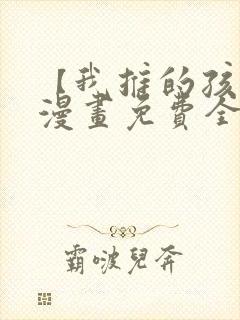 【我推的孩
漫畫免費全
霸啵兒奔